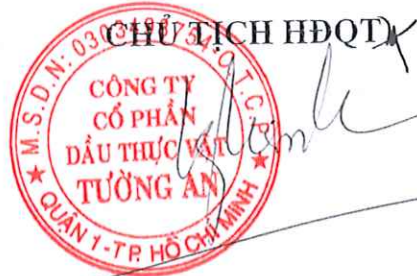 CHỦ TỊCH HĐQT
M.S.D.N:
C.T.C.P
CÔNG TY
CỔ PHẦN
DẦU THỰC VẬT
TƯỜNG AN
QUẬN 1-TP. HỒ CHÍ MINH